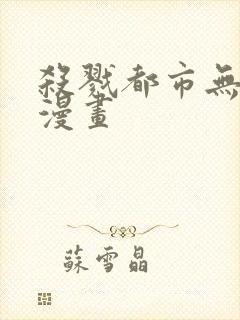 殺戮都市無
漫畫
蘇雪晶